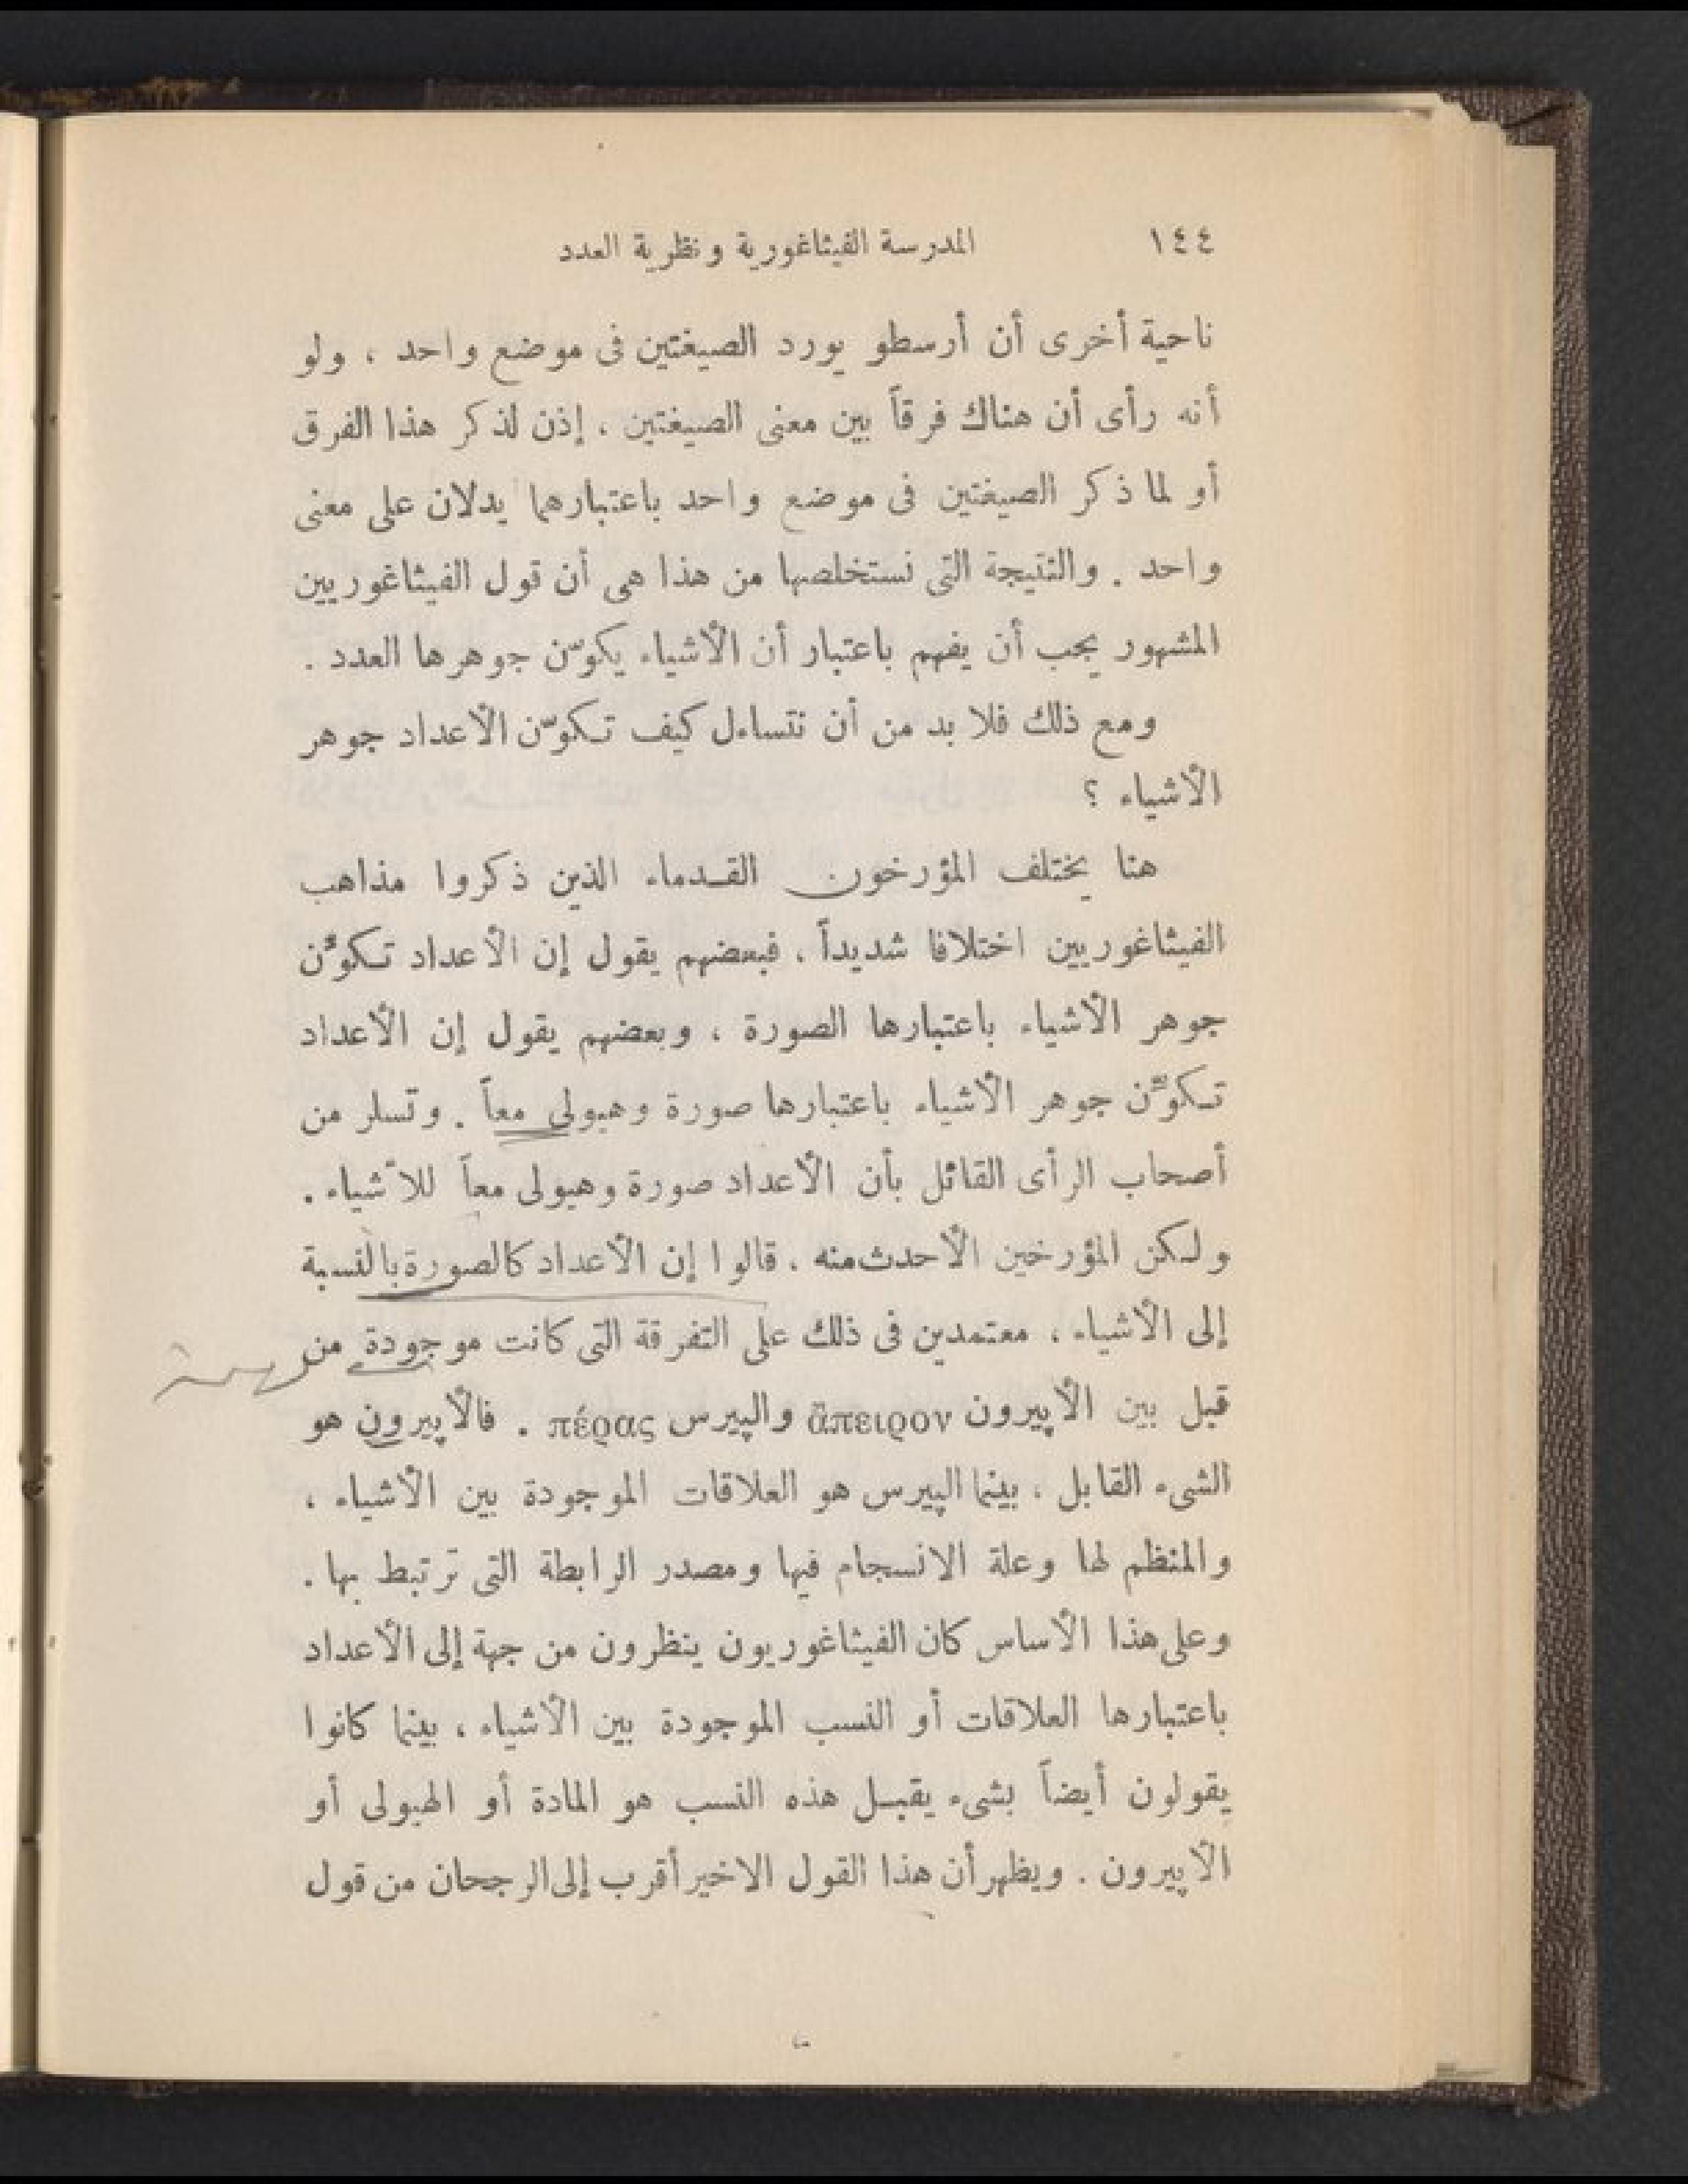 ١٤٤ المدرسة الفيثاغورية ونظرية العدد
ناحية أخرى أن أرسطو يورد الصيغتين فى موضع واحد ، ولو
أنه رأى أن هناك فرقاً بين معنى الصيغتين ، إذن لذكر هذا الفرق
أو لما ذكر الصيغتين فى موضع واحد باعتبارهما يدلان على معنى
واحد . والنتيجة التى نستخلصها من هذا هى أن قول الفيثاغوريين
المشهور يجب أن يفهم باعتبار أن الأشياء يكوّن جوهرها العدد .
ومع ذلك فلا بد من أن نتساءل كيف تكوّن الأعداد جوهر
الأشياء ؟
هنا يختلف المؤرخون القدماء الذين ذكروا مذاهب
الفيثاغوريين اختلافا شديداً ، فبعضهم يقول إن الأعداد تكوِّن
جوهر الأشياء باعتبارها الصورة ، وبعضهم يقول إن الأعداد
تكوِّن جوهر الأشياء باعتبارها صورة وهيولى معاً . وتسلر من
أصحاب الرأى القائل بأن الأعداد صورة وهيولى معاً للأشياء .
ولكن المؤرخين الأحدث منه ، قالوا إن الأعداد كالصورة بالنسبة
إلى الأشياء ، معتمدين فى ذلك على التفرقة التى كانت موجودة من
قبل بين الأپيرون ἄπειρον والپيرس πέρας . فالأپيرون هو
الشىء القابل ، بينما الپيرس هو العلاقات الموجودة بين الأشياء ،
والمنظم لها وعلة الانسجام فيها ومصدر الرابطة التى ترتبط بها .
وعلى هذا الأساس كان الفيثاغوريون ينظرون من جهة إلى الأعداد
باعتبارها العلاقات أو النسب الموجودة بين الأشياء ، بينما كانوا
يقولون أيضاً بشىء يقبل هذه النسب هو المادة أو الهيولى أو
الأپيرون . ويظهر أن هذا القول الاخير أقرب إلى الرجحان من قول